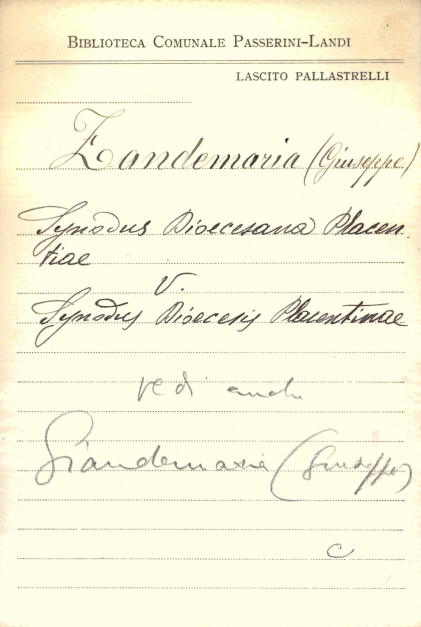 BIBLIOTECA COMUNALE PASSERINI-LANDI
LASCITO PALLASTRELLI
Zandemaria (Giuseppe)
Synodus Dioecesana Placen-
tiae
V.
Synodus Dioecesis Placentinae
vedi anche
Giandemaria (Giuseppe)
C